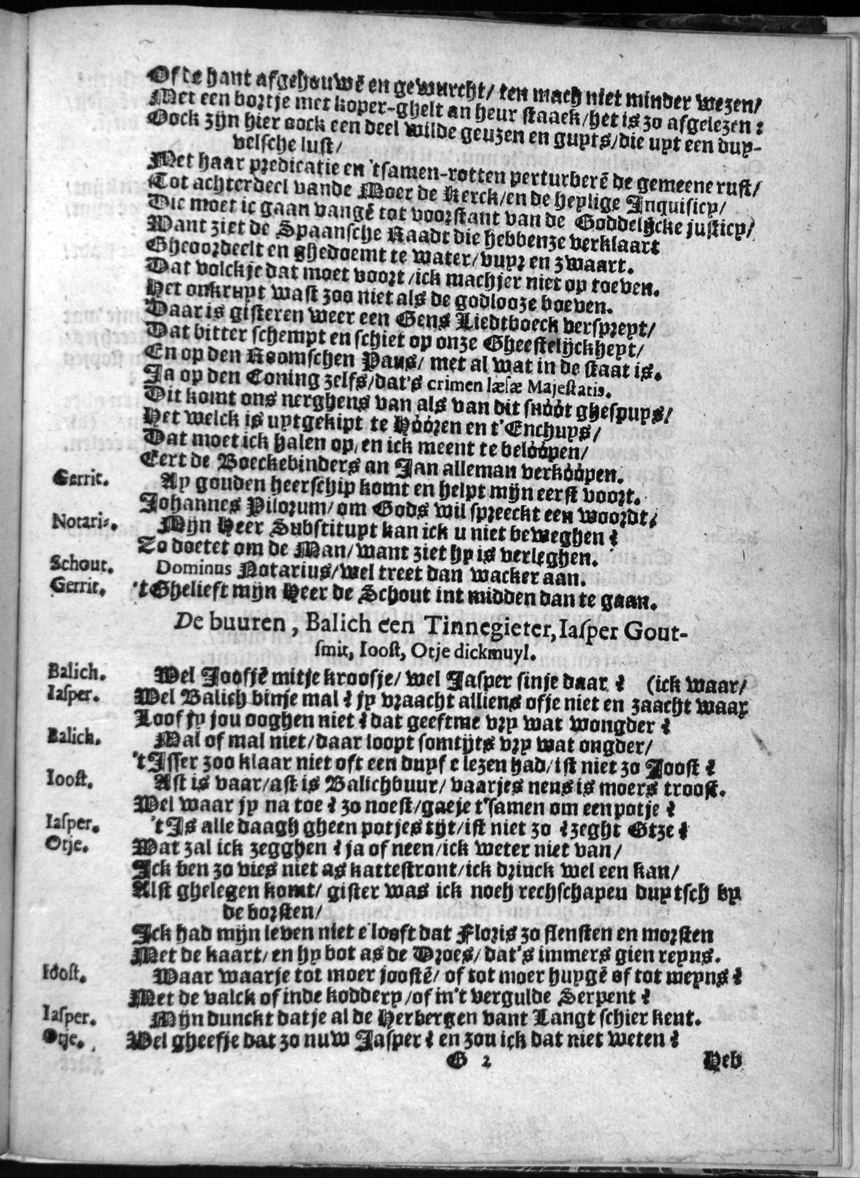 Ofte hant afgehouwē en gewurcht/ ten mach niet minder wezen/
Met een bortje met koper-ghelt an heur staack/het is zo afgelezen:
Oock zijn hier oock een deel wilde geuzen en guyts/die uyt een duy-
velsche lust/
Met haar predicatie en 'tsamen-rotten perturberē de gemeene rust/
Tot achterdeel vande Moer de Kerck/en de heylige Inquisicy/
Die moet ic gaan vangē tot voorstant van de Goddelijcke justicy/
Want ziet de Spaansche Raadt die hebbenze verklaart
Gheoordeelt en ghedoemt te water/vuyr en zwaart.
Dat volckje dat moet voort/ick machjer niet op toeven.
Het onkruyt wast zoo niet als de godlooze boeven.
Daar is gisteren weer een Gens Liedtboeck verspreyt/
Dat bitter schempt en schiet op onze Gheestelijckheyt/
En op den Roomschen Paus/ met al wat in de staat is.
Ja op den Coning zelfs/dat's crimen læsæ Majestatis.
Dit komt ons nerghens van als van dit snóót ghespuys/
Het welck is uytgekipt te Hóóren en t'Enchuys/
Dat moet ick halen op, en ick meent te belóópen/
Eert de Boeckebinders an Jan alleman verkóópen.
Gerrit. Ay gouden heerschip komt en helpt mijn eerst voort.
Johannes Pilorum/ om Gods wil spreeckt een woordt/
Notaris. Mijn Heer Substituyt kan ick u niet beweghen?
Zo doetet om de Man/want ziet hy is verleghen.
Schout. Dominus Notarius/wel treet dan wacker aan.
Gerrit. 'tGhelieft mijn Heer de Schout int midden dan te gaan.
De buuren, Balich een Tinnegieter, Iasper Gout-
smit, Ioost, Otje dickmuyl.
Balich. Wel Joosjē mitje kroosje/ wel Jasper sinje daar? (ick waar/
Iasper. Wel Balich binje mal? jy vraacht alliens ofje niet en zaacht waar
Loof jy jou ooghen niet? dat geeftme vry wat wongder?
Balich. Mal of mal niet/daar loopt somtijts vry wat ongder/
't Isser zoo klaar niet oft een duyf e lezen had/ist niet zo Joost?
Ioost. Ast is vaar/ast is Balichbuur/ vaarjes nens is moers troost.
Wel waar jy na toe? zo noest/gaeje t'samen om een potje?
Iasper. 't Is alle daagh gheen potjes tijt/ist niet zo? zeght Otze?
Otje. Wat zal ick zegghen? ja of neen/ick weter niet van/
Ick ben zo vies niet as kattestront/ick drinck wel een kan/
Alst ghelegen komt/ gister was ick noch rechschapen duytsch by
de borsten/
Ick had mijn leven niet e'looft dat Floris zo flensten en morsten
Met de kaart/ en hy bot as de Droes/ dat's immers gien reyns.
Ioost. Waar waarje tot moer joostē/ of tot moer huygē of tot meyns?
Met de valck of inde koddery/of in't vergulde Serpent?
Iasper. Mijn dunckt datje al de Herbergen vant Langt schier kent.
Otje. Wel gheefje dat zo nuw Jasper? en zou ick dat niet weten?
G 2 Heb